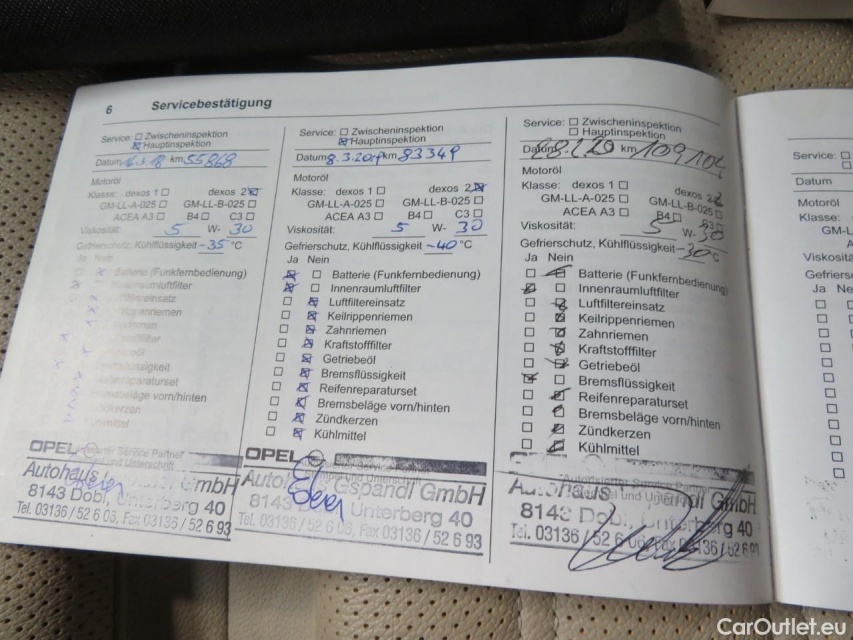 6 Servicebestätigung
Service: Zwischeninspektion
Hauptinspektion
Datum 16.3.18 km 55868
Motoröl
Klasse: dexos 1 dexos 2
GM-LL-A-025 GM-LL-B-025
ACEA A3 B4 C3
Viskosität: 5 W- 30
Gefrierschutz, Kühlflüssigkeit -35 °C
Ja Nein
Batterie (Funkfernbedienung)
Innenraumluftfilter
OPEL
Service Partner
und Unterschrift
Autohaus GmbH
8143 Dobl, Unterberg 40
Tel. 03136 / 52 6 03, Fax 03136 / 52 6 93
Service: Zwischeninspektion
Hauptinspektion
Datum 8.3.2019 km 83349
Motoröl
Klasse: dexos 1 dexos 2
GM-LL-A-025 GM-LL-B-025
ACEA A3 B4 C3
Viskosität: 5 W- 30
Gefrierschutz, Kühlflüssigkeit -40 °C
Ja Nein
Batterie (Funkfernbedienung)
Innenraumluftfilter
Luftfiltereinsatz
Keilrippenriemen
Zahnriemen
Kraftstofffilter
Getriebeöl
Bremsflüssigkeit
Reifenreparaturset
Bremsbeläge vorn/hinten
Zündkerzen
Kühlmittel
OPEL
GmbH
8143 Unterberg 40
Tel. 03136 / 52 6 03, Fax 03136 / 52 6 93
Service: Zwischeninspektion
Hauptinspektion
Datum 28.2.20 km 109104
Motoröl
Klasse: dexos 1 dexos 2
GM-LL-A-025 GM-LL-B-025
ACEA A3 B4
Viskosität: 5 W- 30
Gefrierschutz, Kühlflüssigkeit -30 °C
Ja Nein
Batterie (Funkfernbedienung)
Innenraumluftfilter
Luftfiltereinsatz
Keilrippenriemen
Zahnriemen
Kraftstofffilter
Getriebeöl
Bremsflüssigkeit
Reifenreparaturset
Bremsbeläge vorn/hinten
Zündkerzen
Kühlmittel
Autohaus GmbH
8143 Dobl, Unterberg 40
Tel. 03136 / 52 6
Service:
Datum
Motoröl
Klasse:
GM-L
Viskositä
Gefriers
Ja Ne
CarOutlet.eu